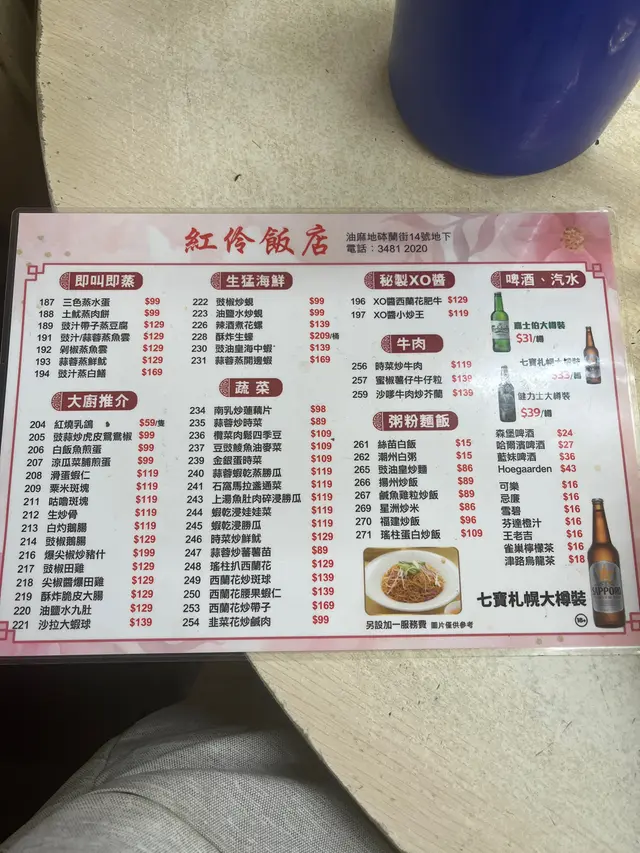 紅伶飯店
油麻地砵蘭街14號地下
電話：3481 2020
即叫即蒸
187 三色蒸水蛋 $99
188 土魷蒸肉餅 $99
189 豉汁帶子蒸豆腐 $129
191 豉汁/蒜蓉蒸魚雲 $129
192 剁椒蒸魚雲 $129
193 蒜蓉蒸鮮魷 $129
194 豉汁蒸白鱔 $169
大廚推介
204 紅燒乳鴿 $59/隻
205 豉蒜炒虎皮鴛鴦椒 $99
206 白飯魚煎蛋 $99
207 涼瓜菜脯煎蛋 $99
208 滑蛋蝦仁 $119
209 粟米斑塊 $119
211 咕嚕斑塊 $119
212 生炒骨 $119
213 白灼鵝腸 $119
214 豉椒鵝腸 $129
216 爆尖椒炒豬什 $199
217 豉椒田雞 $129
218 尖椒醬爆田雞 $129
219 酥炸脆皮大腸 $129
220 油鹽水九肚 $129
221 沙拉大蝦球 $139
生猛海鮮
222 豉椒炒蜆 $99
223 油鹽水炒蜆 $99
226 辣酒煮花螺 $139
228 酥炸生蠔 $209/桶
230 豉油皇海中蝦 $139
231 蒜蓉蒸開邊蝦 $169
蔬菜
234 南乳炒蓮藕片 $98
235 蒜蓉炒時菜 $89
236 欖菜肉鬆四季豆 $109
237 豆豉鯪魚油麥菜 $109
239 金銀蛋時菜 $109
240 蒜蓉蝦乾蒸勝瓜 $119
241 石窩馬拉盞通菜 $119
243 上湯魚肚肉碎浸勝瓜 $119
244 蝦乾浸娃娃菜 $119
245 蝦乾浸勝瓜 $119
246 時菜炒鮮魷 $129
247 蒜蓉炒蕃薯苗 $89
248 瑤柱扒西蘭花 $129
249 西蘭花炒斑球 $139
250 西蘭花腰果蝦仁 $139
253 西蘭花炒帶子 $169
254 韭菜花炒鹹肉 $99
秘製XO醬
196 XO醬西蘭花肥牛 $129
197 XO醬小炒王 $119
牛肉
256 時菜炒牛肉 $119
257 蜜椒薯仔牛仔粒 $139
259 沙嗲牛肉炒芥蘭 $139
粥粉麵飯
261 絲苗白飯 $15
262 潮州白粥 $15
265 豉油皇炒麵 $86
266 揚州炒飯 $89
267 鹹魚雞粒炒飯 $89
269 星洲炒米 $86
270 福建炒飯 $96
271 瑤柱蛋白炒飯 $109
另設加一服務費 圖片僅供參考
啤酒、汽水
嘉士伯大樽裝
$31/樽
七寶札幌大樽裝
$33/樽
健力士大樽裝
$39/樽
森堡啤酒 $24
哈爾濱啤酒 $27
藍妹啤酒 $36
Hoegaarden $43
可樂 $16
忌廉 $16
雪碧 $16
芬達橙汁 $16
王老吉 $16
雀巢檸檬茶 $16
津路烏龍茶 $18
七寶札幌大樽裝
SAPPORO